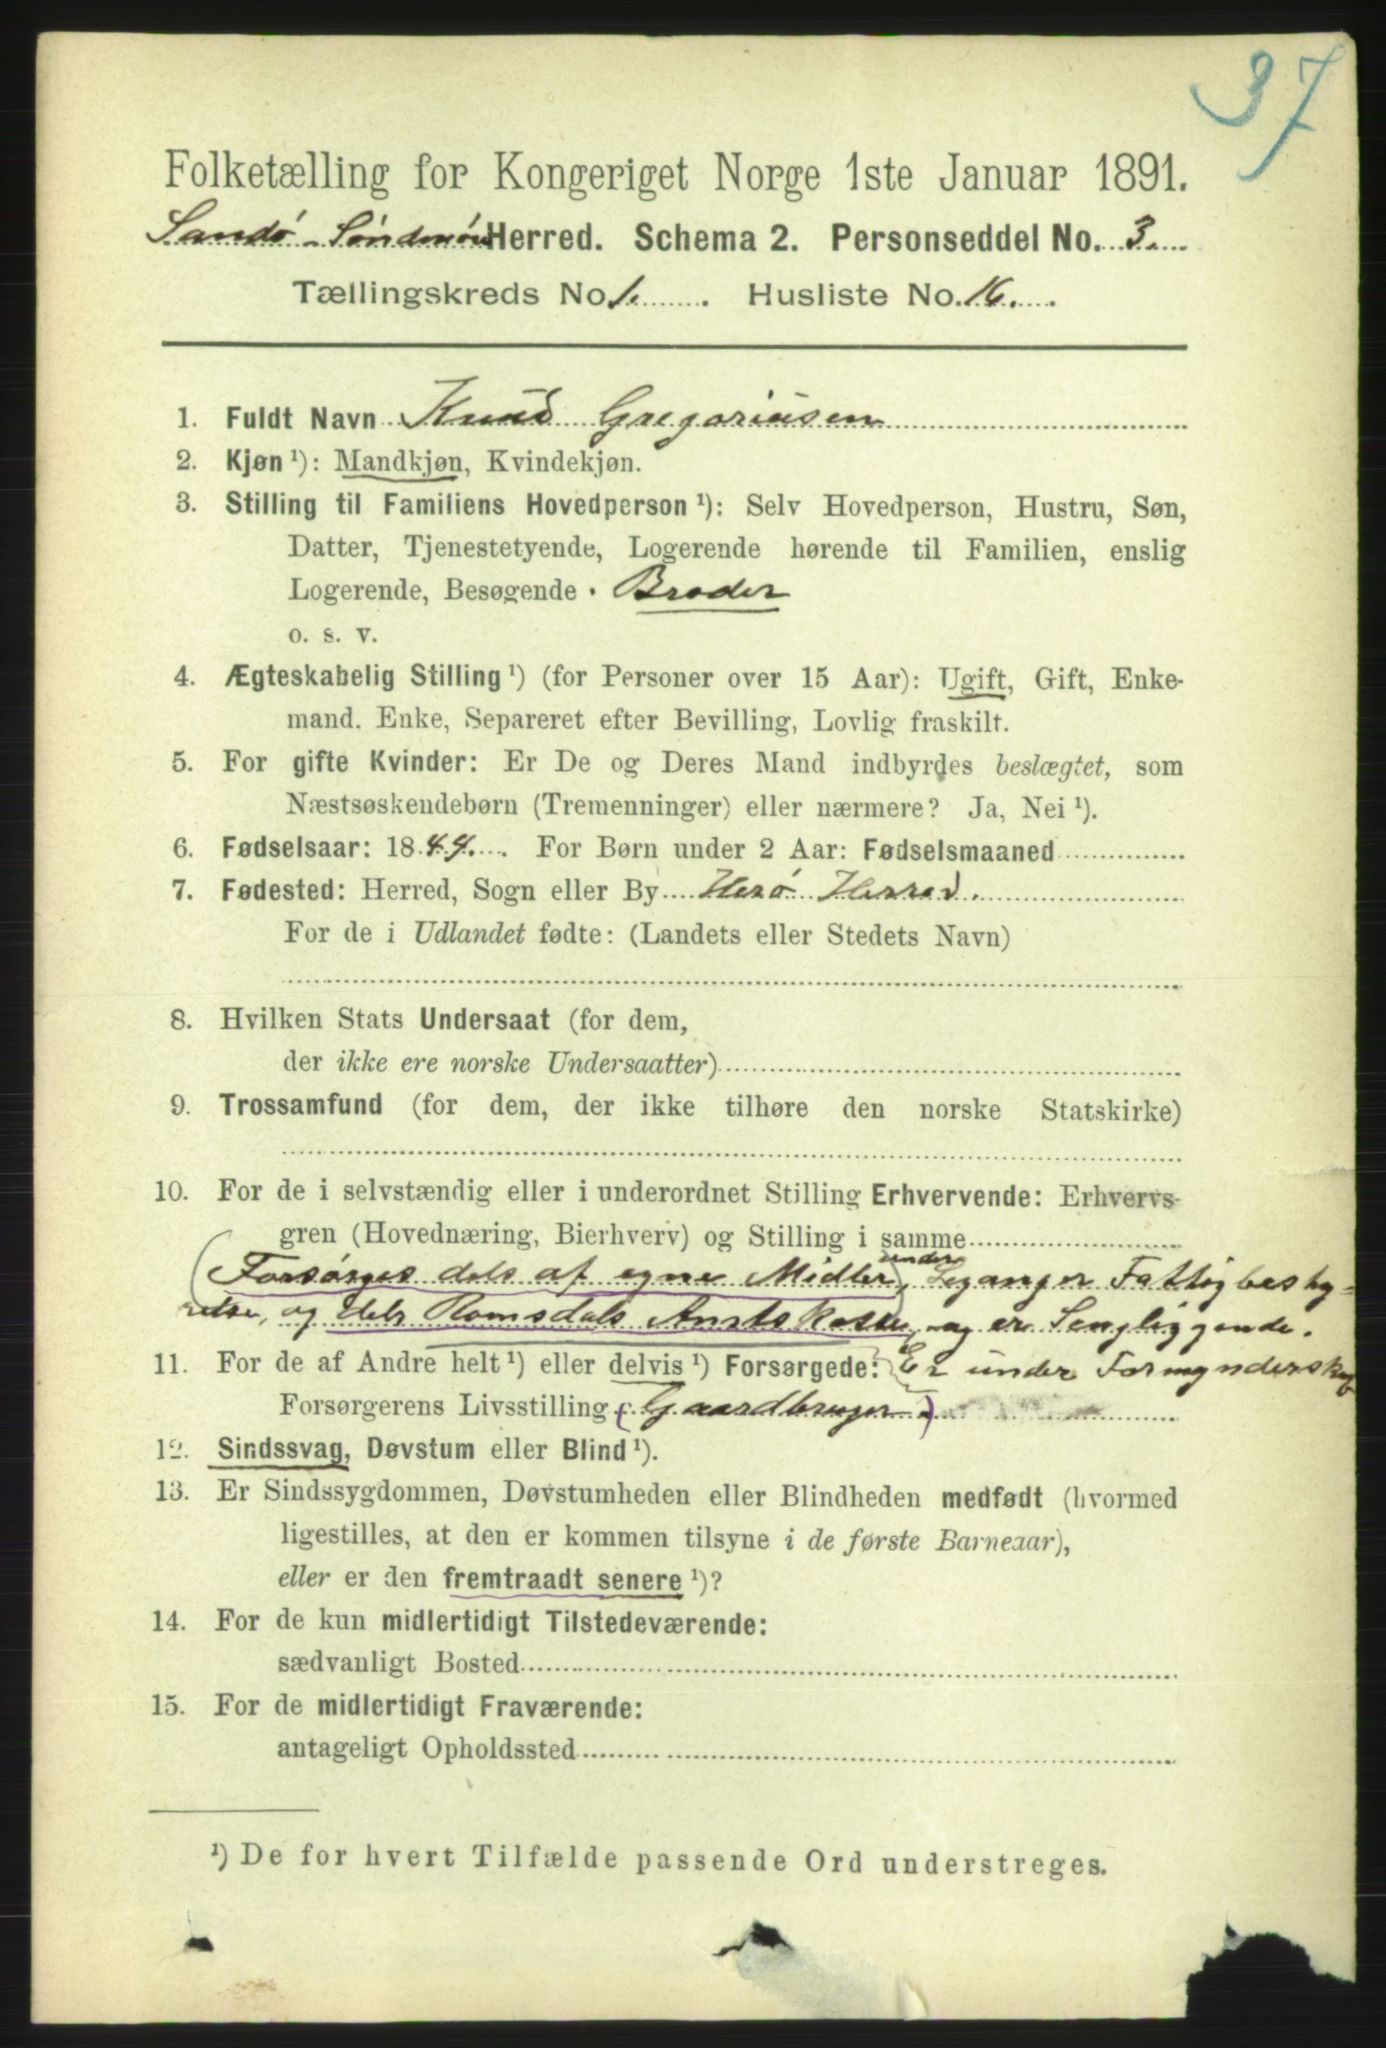 37
Folketælling for Kongeriget Norge 1ste Januar 1891.
Sandö - Söndmör Herred. Schema 2. Personseddel No. 3.
Tællingskreds No. 1. Husliste No. 16.
1. Fuldt Navn Knud Gregoriusen
2. Kjøn ¹): Mandkjøn, Kvindekjøn.
3. Stilling til Familiens Hovedperson ¹): Selv Hovedperson, Hustru, Søn,
Datter, Tjenestetyende, Logerende hørende til Familien, enslig
Logerende, Besøgende · Broder
o. s. v.
4. Ægteskabelig Stilling ¹) (for Personer over 15 Aar): Ugift, Gift, Enke-
mand. Enke, Separeret efter Bevilling, Lovlig fraskilt.
5. For gifte Kvinder: Er De og Deres Mand indbyrdes beslægtet, som
Næstsøskendebørn (Tremenninger) eller nærmere? Ja, Nei ¹).
6. Fødselsaar: 1844. For Børn under 2 Aar: Fødselsmaaned
7. Fødested: Herred, Sogn eller By Herö Herred.
For de i Udlandet fødte: (Landets eller Stedets Navn)
8. Hvilken Stats Undersaat (for dem,
der ikke ere norske Undersaatter)
9. Trossamfund (for dem, der ikke tilhøre den norske Statskirke)
10. For de i selvstændig eller i underordnet Stilling Erhvervende: Erhvervs-
gren (Hovednæring, Bierhverv) og Stilling i samme
(Forsörges dels af egne Midler, under Leganger Fattigbesty-
relse, og dels Romsdals Amtskasse) og er Sengliggende.
11. For de af Andre helt ¹) eller delvis ¹) Forsørgede: Er under Formynderskab
Forsørgerens Livsstilling (Gaardbruger.)
12. Sindssvag, Døvstum eller Blind ¹).
13. Er Sindssygdommen, Døvstumheden eller Blindheden medfødt (hvormed
ligestilles, at den er kommen tilsyne i de første Barneaar),
eller er den fremtraadt senere ¹)?
14. For de kun midlertidigt Tilstedeværende:
sædvanligt Bosted
15. For de midlertidigt Fraværende:
antageligt Opholdssted
¹) De for hvert Tilfælde passende Ord understreges.